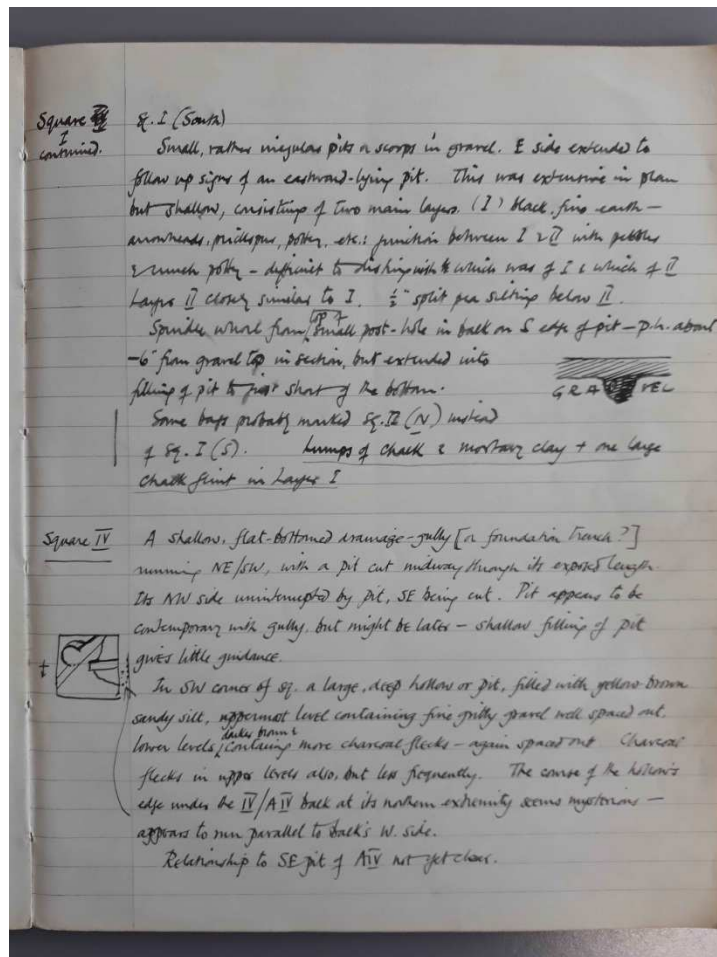 Square
I
continued.
Sq. I (South)
Small, rather irregular pits or scoops in gravel. E side extended to
follow up signs of an eastward-lying pit. This was extensive in plan
but shallow, consisting of two main layers. (I) black, fine earth –
arrowheads, potty, etc.: junction between I & II with pebbles
& much potty – difficult to distinguish which was of I & which of II
Layer II closely similar to I. ½" split pea silting below II.
Spindle whorl from top of small post-hole in baulk on S edge of pit – p.h. about
-6" from gravel top in section, but extended into
filling of pit to just short of the bottom.
GRAVEL
Some bags probably marked Sq. II (N) instead
of Sq. I (S). Lumps of chalk & mortary clay + one large
chalk flint in Layer I
Square IV
A shallow, flat-bottomed drainage-gully [or foundation trench?]
running NE/SW, with a pit cut midway through its exposed length
Its NW side uninterrupted by pit, SE being cut. Pit appears to be
contemporary with gully, but might be later – shallow filling of pit
gives little guidance.
In SW corner of sq. a large, deep hollow or pit, filled with yellow-brown
sandy silt, uppermost level containing fine gritty gravel well spaced out,
lower levels darker brown & containing more charcoal flecks – again spaced out Charcoal
flecks in upper levels also, but less frequently. The course of the hollow's
edge under the IV/AIV baulk at its northern extremity seems mysterious –
appears to run parallel to baulk's W. side.
Relationship to SE pit of AIV not yet clear.